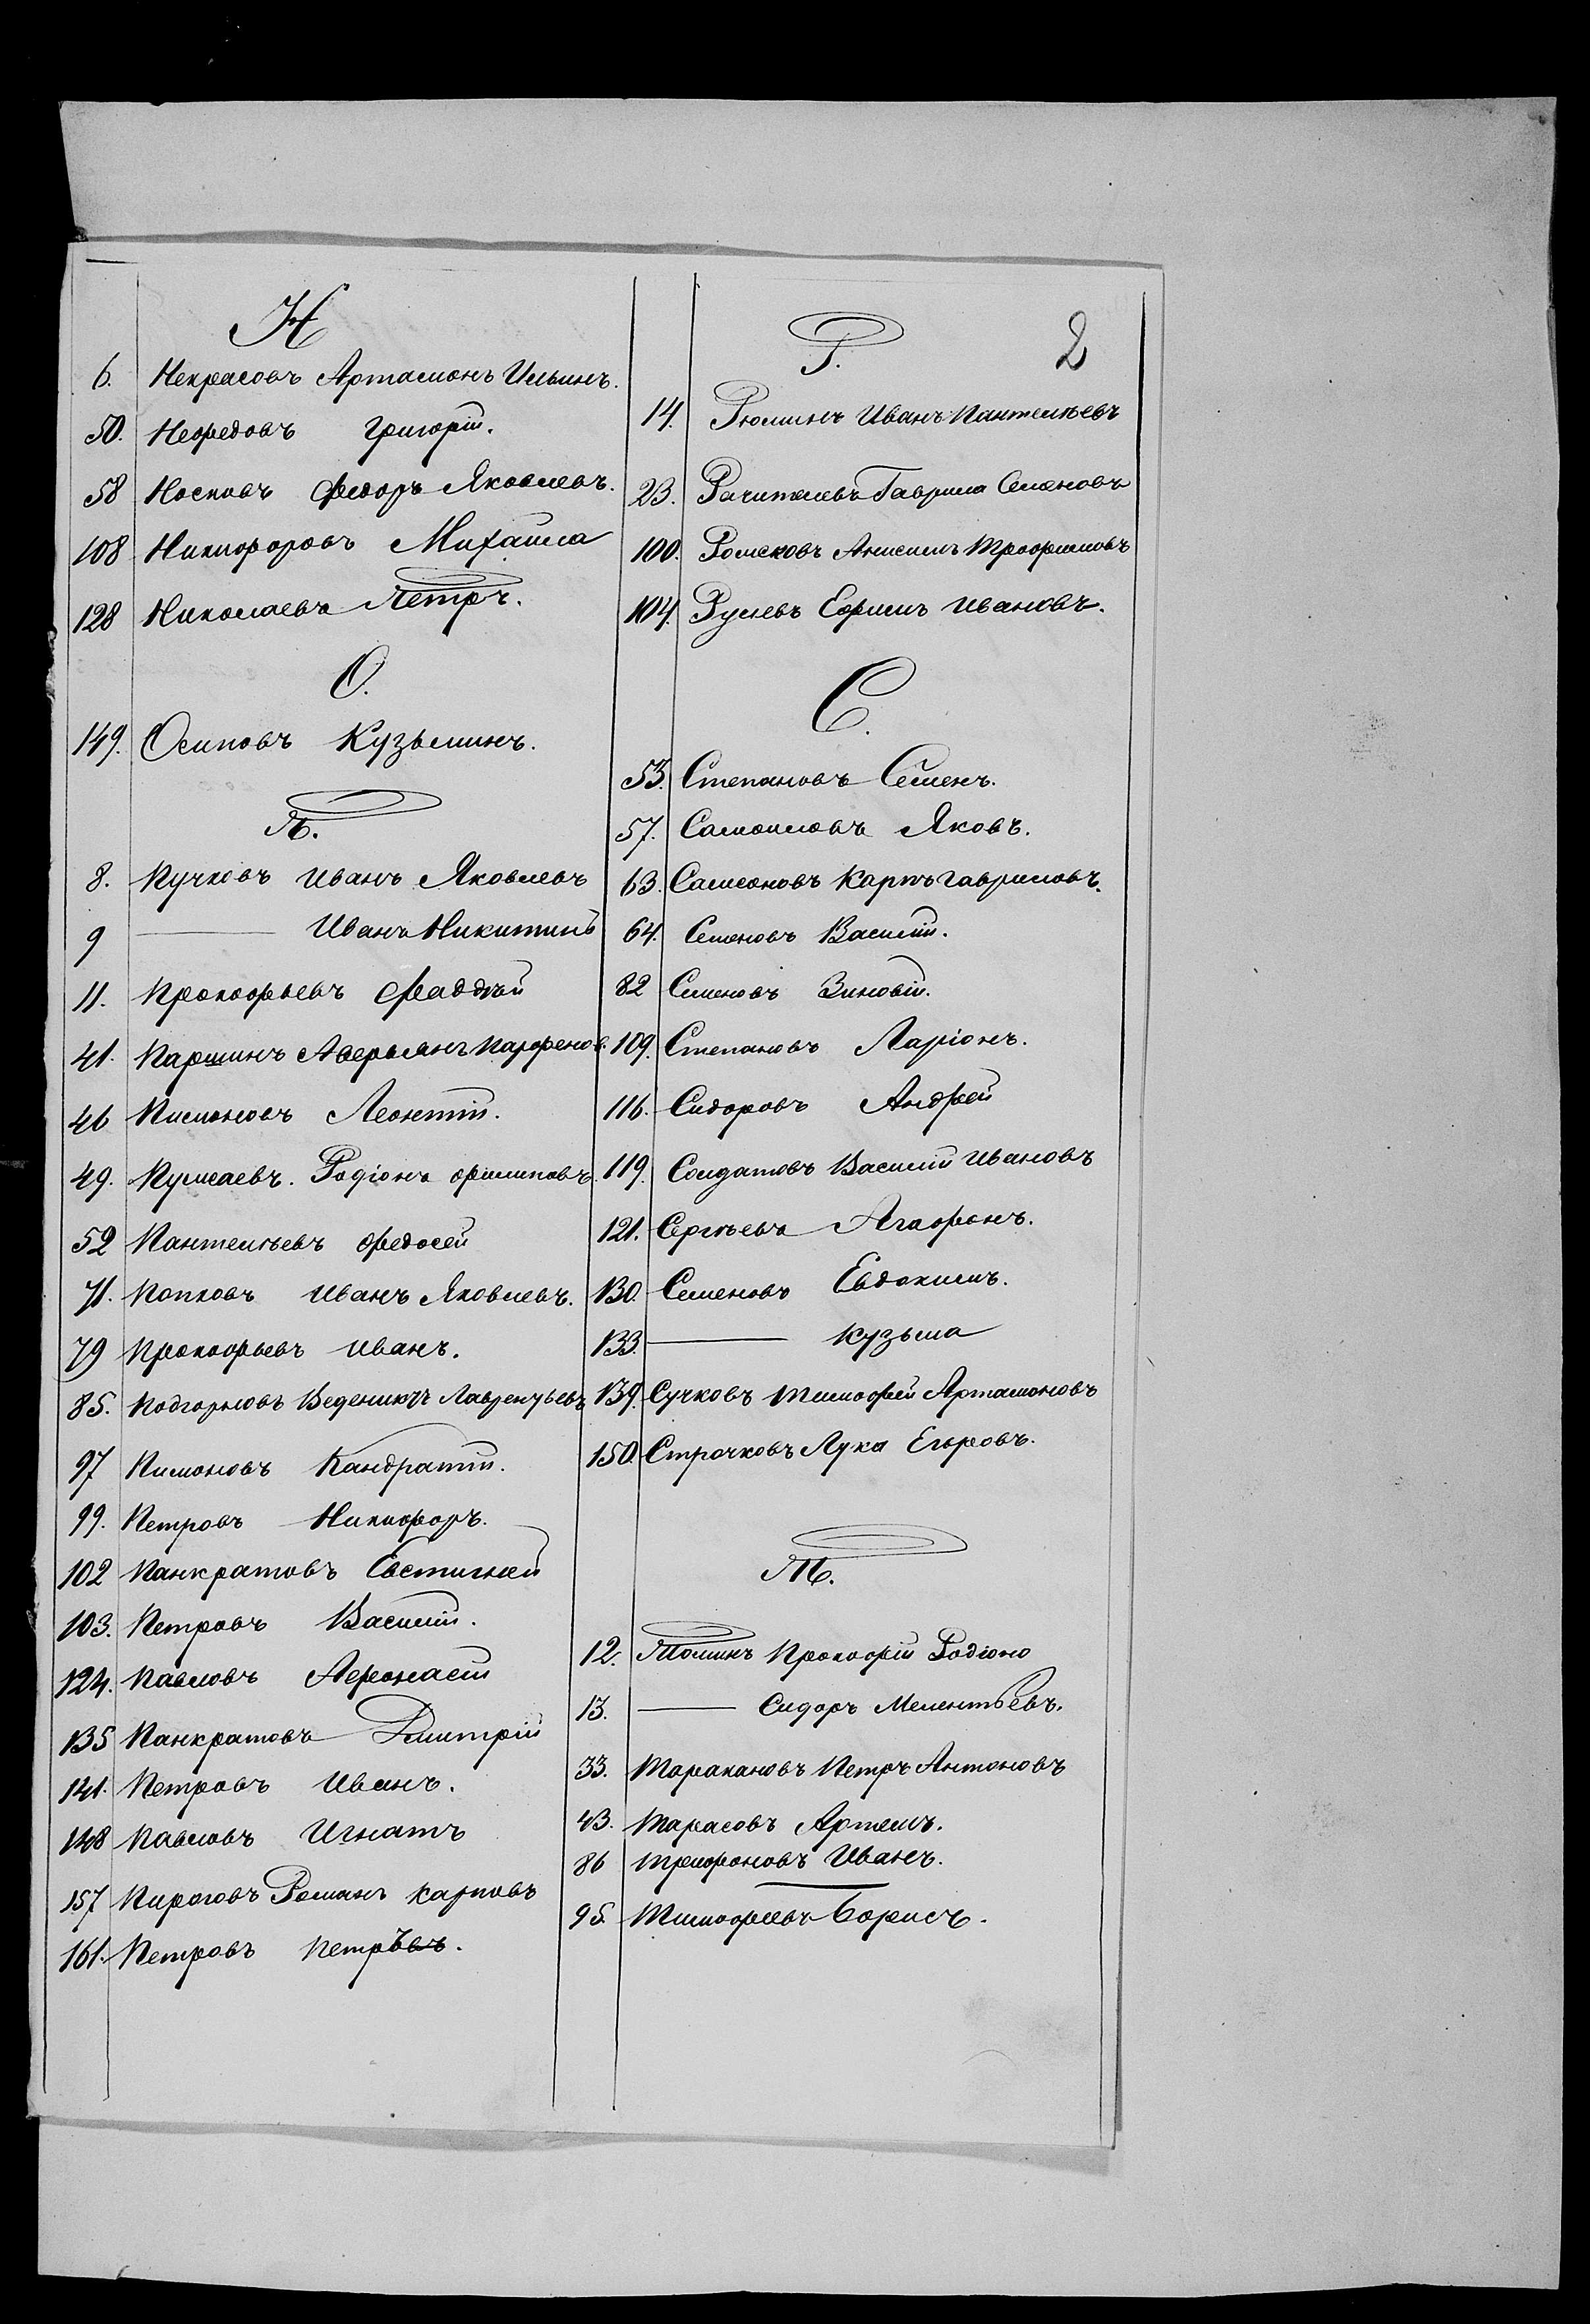 Н
6. Некрасовъ Артамонъ Ильинъ.
50. Нефедовъ Григорій.
58 Носковъ Федоръ Яковлевъ.
108 Никифоровъ Михаила
128 Николаевъ Петръ.
О.
149. Осиповъ Кузьминъ.
П.
8. Пучковъ Иванъ Яковлевъ
9 — Иванъ Никитинъ
11. Прокофьевъ Фаддѣй
41. Паршинъ Аверьянъ Парфенов.
46 Пимоновъ Леонтій.
49. Родіонъ Филиповъ.
52 Пантелѣевъ Федосей
71. Попковъ Иванъ Яковлевъ.
79 Прокофьевъ Иванъ.
85. Подгорновъ Веденихтъ Лаврентьевъ
97 Пимоновъ Кандратій.
99. Петровъ Никифоръ.
102 Панкратовъ Евстигней
103. Петровъ Василій.
124. Павловъ Афонасій
135 Панкратовъ Дмитрій
141. Петровъ Иванъ.
148 Павловъ Игнатъ
157 Пироговъ Романъ Карповъ
161. Петровъ Петръ.
2
Р.
14. Рюминъ Иванъ Пантелѣевъ
23. Рачителевъ Гаврила Семеновъ
100. Анисимъ Трофимовъ
104. Ефимъ Ивановъ.
С.
53. Степановъ Семенъ.
57. Самоиловъ Яковъ.
63. Самсоновъ Карпъ Гавриловъ.
64. Семеновъ Василій.
82 Семеновъ Зиновій.
109. Степановъ Ларіонъ.
116. Сидоровъ Андрей
119. Солдатовъ Василій Ивановъ
121. Сергѣевъ Агафонъ.
130. Семеновъ Евдокимъ.
133. — Кузьма
139. Сучковъ Тимофей Артамоновъ
150. Строчковъ Лука Егоровъ.
Т.
12. Томинъ Прокофій Родіоно
13. — Сидоръ Мелентьевъ.
33. Таракановъ Петръ Антоновъ
43. Тарасовъ Артемъ.
86 Трифоновъ Иванъ.
95. Тимофеевъ Борисъ.